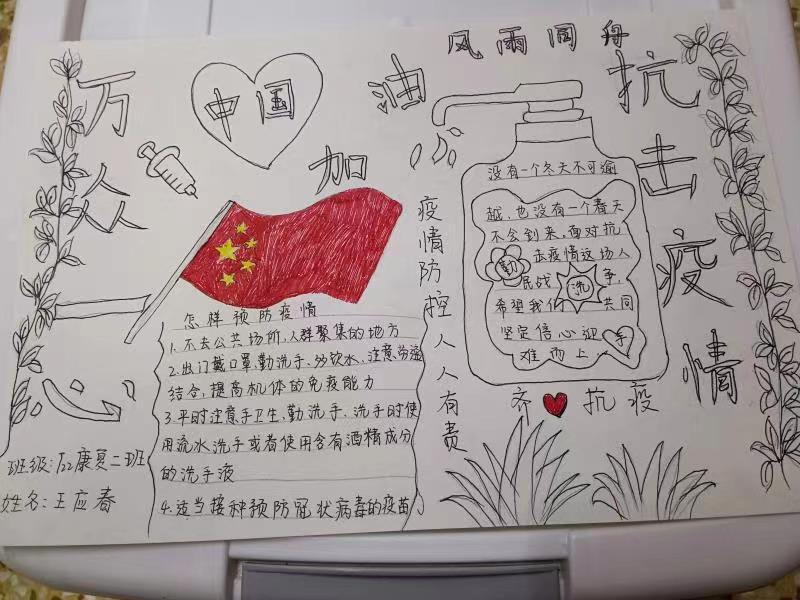 风雨同舟
万众一心
中国
加油
抗击疫情
疫情防控人人有责
没有一个冬天不可逾
越,也没有一个春天
不会到来,面对抗
击疫情这场人
民战争,
希望我们共同
坚定信心迎
难而上
勤
洗
手
齐抗疫
怎样预防疫情
1.不去公共场所,人群聚集的地方
2.出门戴口罩,勤洗手、多饮水,注意劳逸
结合,提高机体的免疫能力
3.平时注意手卫生,勤洗手、洗手时使
用流水洗手或者使用含有酒精成分
的洗手液
4.适当接种预防冠状病毒的疫苗
班级:石康复二班
姓名:王应春